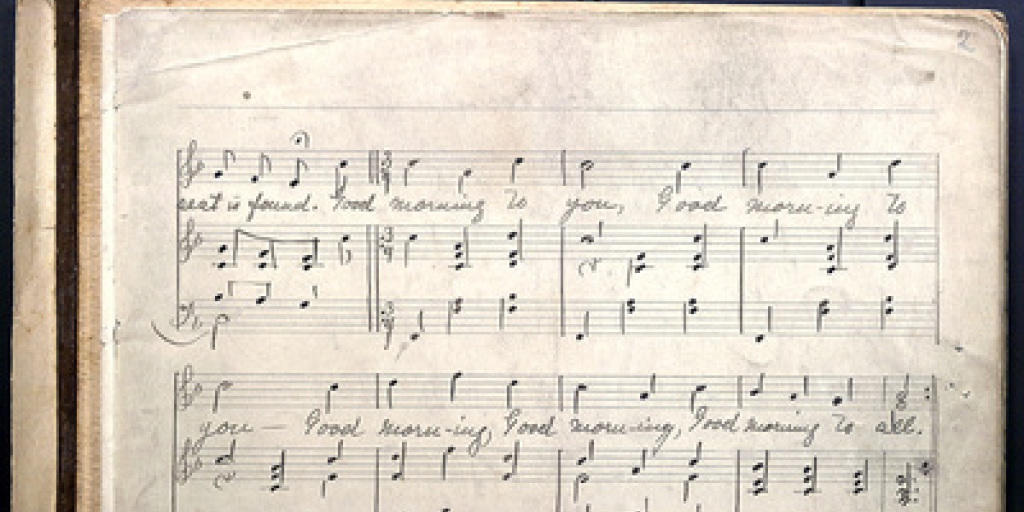 2
seat is found. Good morning to you, Good morn-ing to
you — Good morn-ing, Good morn-ing, Good morning to all.